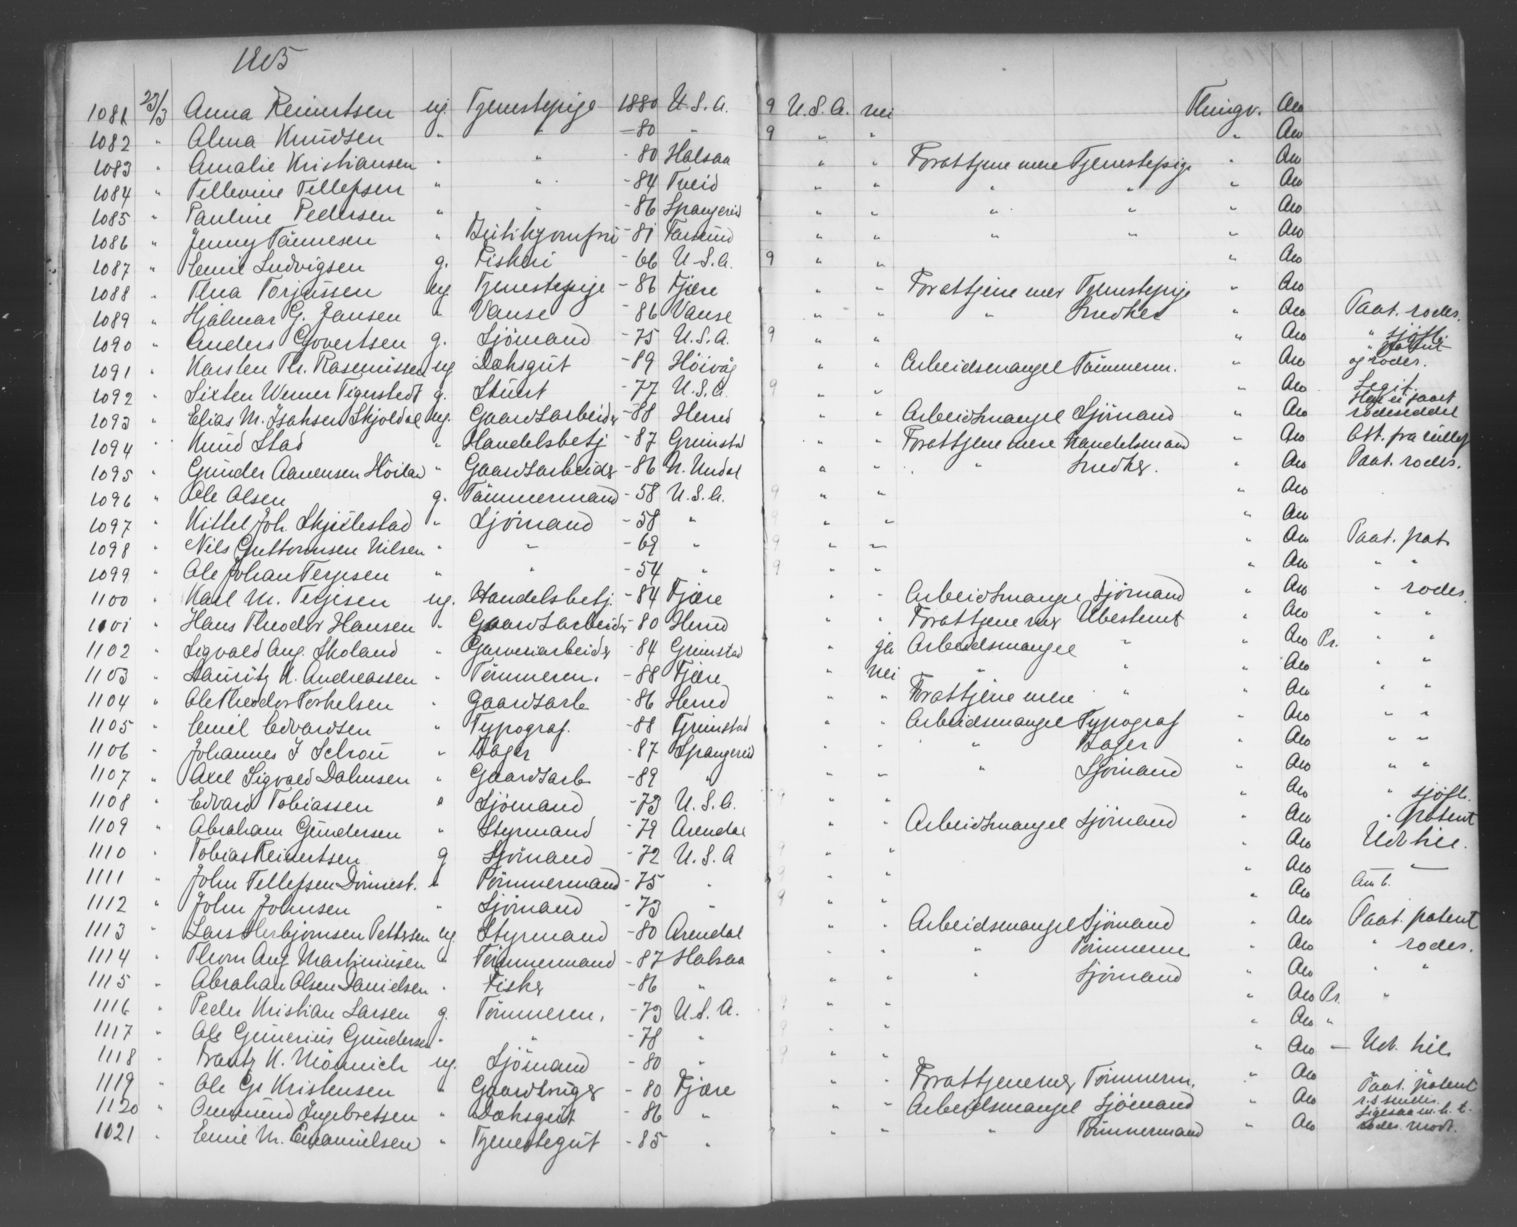 1905
1081 23/3 Anna Reinertsen ug. Tjenestepige 1880 U.S.A. 9 U.S.A. nei Thingv. Aro
1082 " Alma Knudsen " " -80 " 9 " " " Aro
1083 " Amalie Kristiansen " " -80 Halsaa " " For at tjene mere Tjenestepige " Aro
1084 " Tellevine Tellefsen " " -84 Tveid " " " " " Aro
1085 " Pauline Pedersen " " -86 Spangereid " " " " " Aro
1086 " Jenny Tönnesen " -81 Farsund " " " " " Aro
1087 " Emil Ludvigsen g. Fiskeri -66 U.S.A. 9 " " " Aro
1088 " Thea Torjussen ug. Tjenestepige -86 Fjære " " For at tjene mer Tjenestepige " Aro
1089 " Hjalmar G. Jansen " Vanse -86 Vanse " " " Snedker " Aro Paat. rodes.
1090 " Anders Govertsen g. Sjömand -75 U.S.A. 9 " " " Aro " sjöfl.
1091 " Karsten Th. Rasmussen ug Dæksgut -89 Höivåg " " Arbeidsmangel Tömmerm. " Aro og rodes.
1092 " Sixten Werner Tigerstedt g. Stuert -77 U.S.A. 9 " " " Aro Legit.
1093 " Elias M. Isaksen Skjoldal ug. Gaardsarbeider -88 Herred " " Arbeidsmangel Sjömand " Aro rodeseddel
1094 " Knud Stad " Handelsbetj. -87 Grimstad " " For at tjene mere Handelsmand " Aro Att. fra
1095 " Gunder Aanensen Höiland " Gaardsarbeider -86 N. Undal " " " Snedker. " Aro Paat. rodes.
1096 " Ole Olsen g. Tömmermand -58 U.S.A. 9 " " " Aro
1097 " Kittel Joh. Skjulestad " Sjömand -58 " 9 " " " Aro
1098 " Nils Guttormsen Nilsen " " -69 " 9 " " " Aro Paat. pat.
1099 " Ole Johan Terjesen " " -54 " 9 " " " Aro " "
1100 " Karl M. Terjesen ug. Handelsbetj. -84 Fjære " " Arbeidsmangel Sjömand " Aro " rodes.
1101 " Hans Theodor Hansen " Gaardsarbeider -80 Herred " " For at tjene mer Ubestemt " Aro " "
1102 " Sigvald Aug. Skoland " Garveriarbeider -84 Grimstad " ja Arbeidsmangel " " Aro Pr. " "
1103 " Lauritz K. Andreassen " Tömmerm. -88 Fjære " nei " " " Aro " "
1104 " Ole Theodor Torkelsen " gaardsarb -86 Herred " " For at tjene mere " " Aro " "
1105 " Emil Edvardsen " Typograf. -88 Grimstad " " Arbeidsmangel Typograf " Aro " "
1106 " Johannes J Selvou " Bager -87 Spangereid " " " Bager " Aro " "
1107 " Axel Sigvald Dahnsen " Gaardsarb -89 " " " " Sjömand " Aro " "
1108 " Edvard Tobiassen " Sjömand -73 U.S.A. 9 " " " Aro " sjöfl.
1109 " Abraham Gundersen " Styrmand -79 Arendal " " Arbeidsmangel Sjömand " Aro " patent
1110 " Tobias Reinertsen g Sjömand -72 U.S.A 9 " " " Aro Udt. hil.
1111 " John Tellefsen " Tömmermand -75 " 9 " " " Aro —
1112 " John Johnsen " Sjömand -73 " 9 " " " Aro Amb.
1113 " Lars Herbjornsen Pettersen ug Styrmand -80 Arendal " " Arbeidsmangel Sjömand " Aro Paat. patent
1114 " Thom Aug Martiniusen " Tömmermand -87 Halsaa " " " Tömmerm " Aro " rodes.
1115 " Abraham Olsen Danielsen " Fisker -86 " " " " Sjömand " Aro " "
1116 " Peder Kristian Larsen g. Tömmerm. -73 U.S.A. 9 " " " Aro Pr. "
1117 " Ole Gunerius Gundersen " " -78 " 9 " " " Aro "
1118 " Frantz K. Mönnich ug. Sjömand -80 " 9 " " " Aro — Udt. hil.
1119 " Ole Gs Kristensen " Gaardbruger -80 Fjære " " For at tjene mer Tömmerm. " Aro Paat. patent
1120 " Ommund Ingebretsen " Dæksgut -86 " " " Arbeidsmangel Sjömand " Aro
1021 " Emil M. Emanuelsen " Tjenestegut -85 " " " " Tömmermand " Aro rodes. modt.